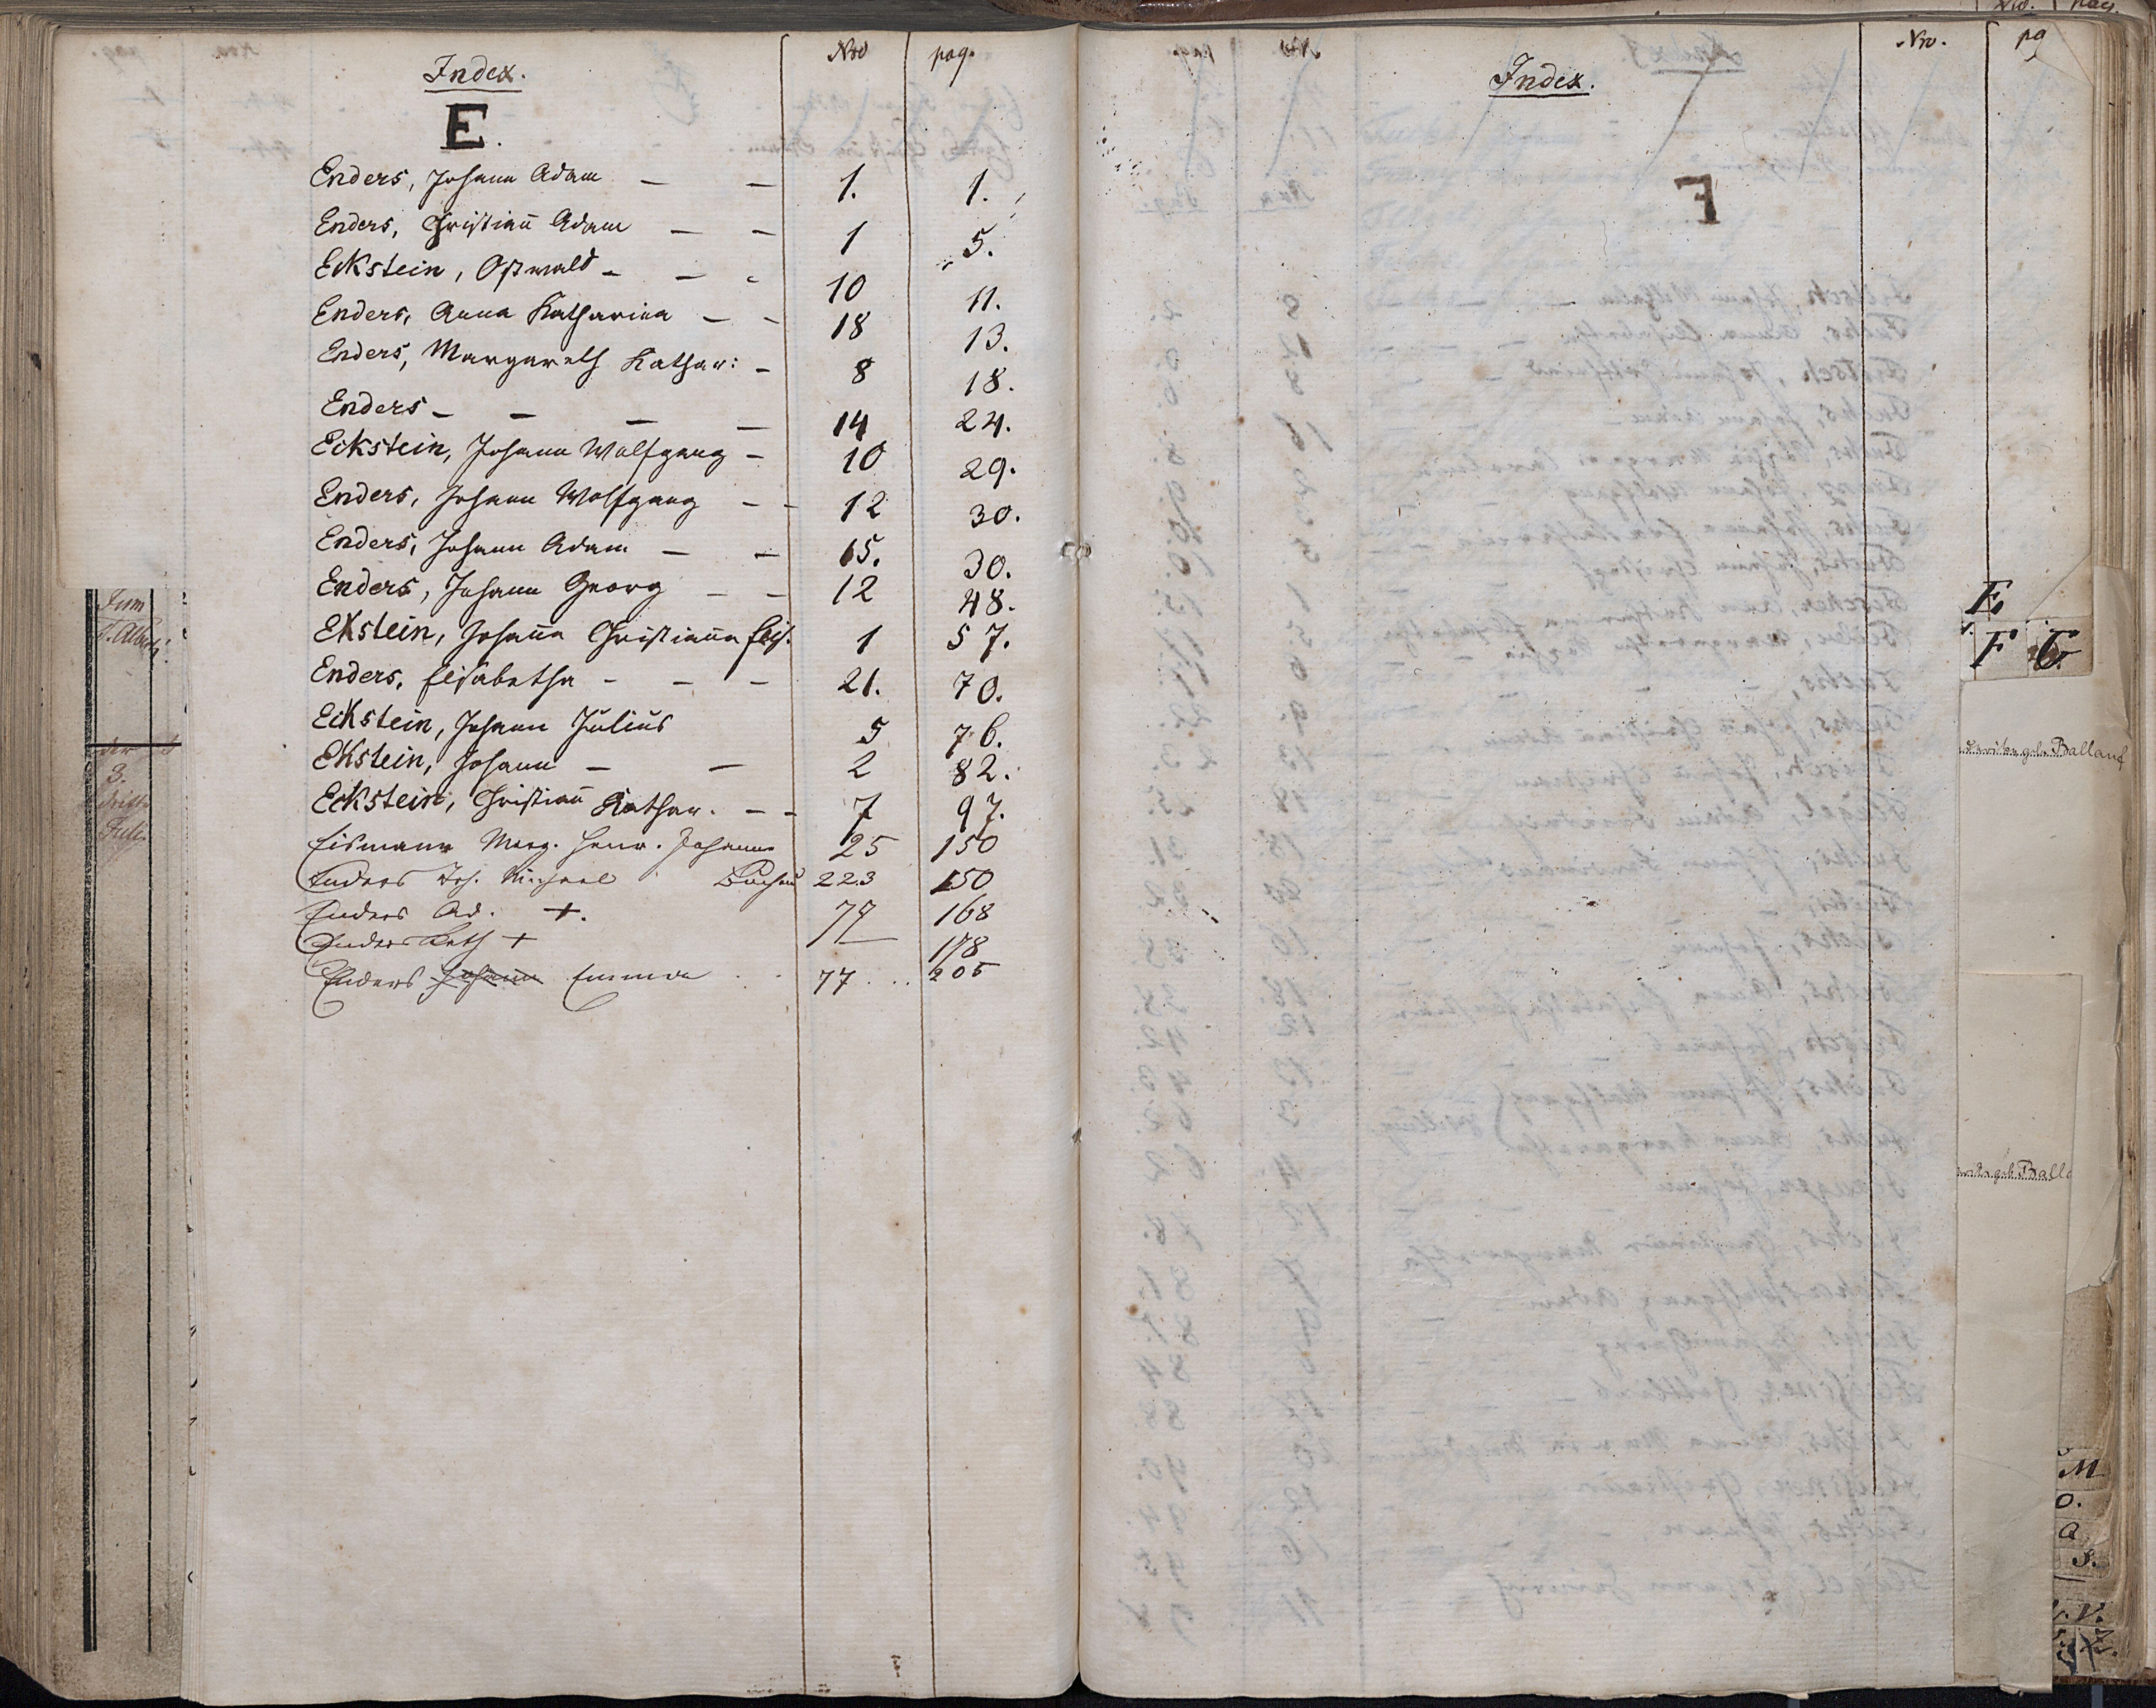 Index.
Nro pag.
E.
Enders, Johann Adam — — 1. 1.
Enders, Christian̄ Adam — — 1 5.
Eckstein, Oswald — — 10 11.
Enders, Anna Katharina — — 18 13.
Enders, Margareth Kathar: — 8 18.
Enders — — — — 14 24.
Eckstein, Johann Wolfgang — 10 29.
Enders, Johann Wolfgang — — 12 30.
Enders, Johann Adam — — 15. 30.
Enders, Johann Georg — — 12 48.
Ekstein, Johan̄a Christian̄a Elis. 1 57.
Enders, Elisabetha — — — 21. 70.
Eckstein, Johann Julius 5 76.
Ekstein, Johann — — 2 82.
Eckstein, Christian̄ Kathar. — — 7 97.
Eismann Marg. Henr. Johanna 25 150
Enders Joh. Michael 223 150
Enders Ad. +. 79 168
Enders Kath + 178
Enders Johann Emma 77 205
Index.
Nro. pag
E.
F G
Balland
geb. Balla
M
O.
Q
S.
V.
Z.